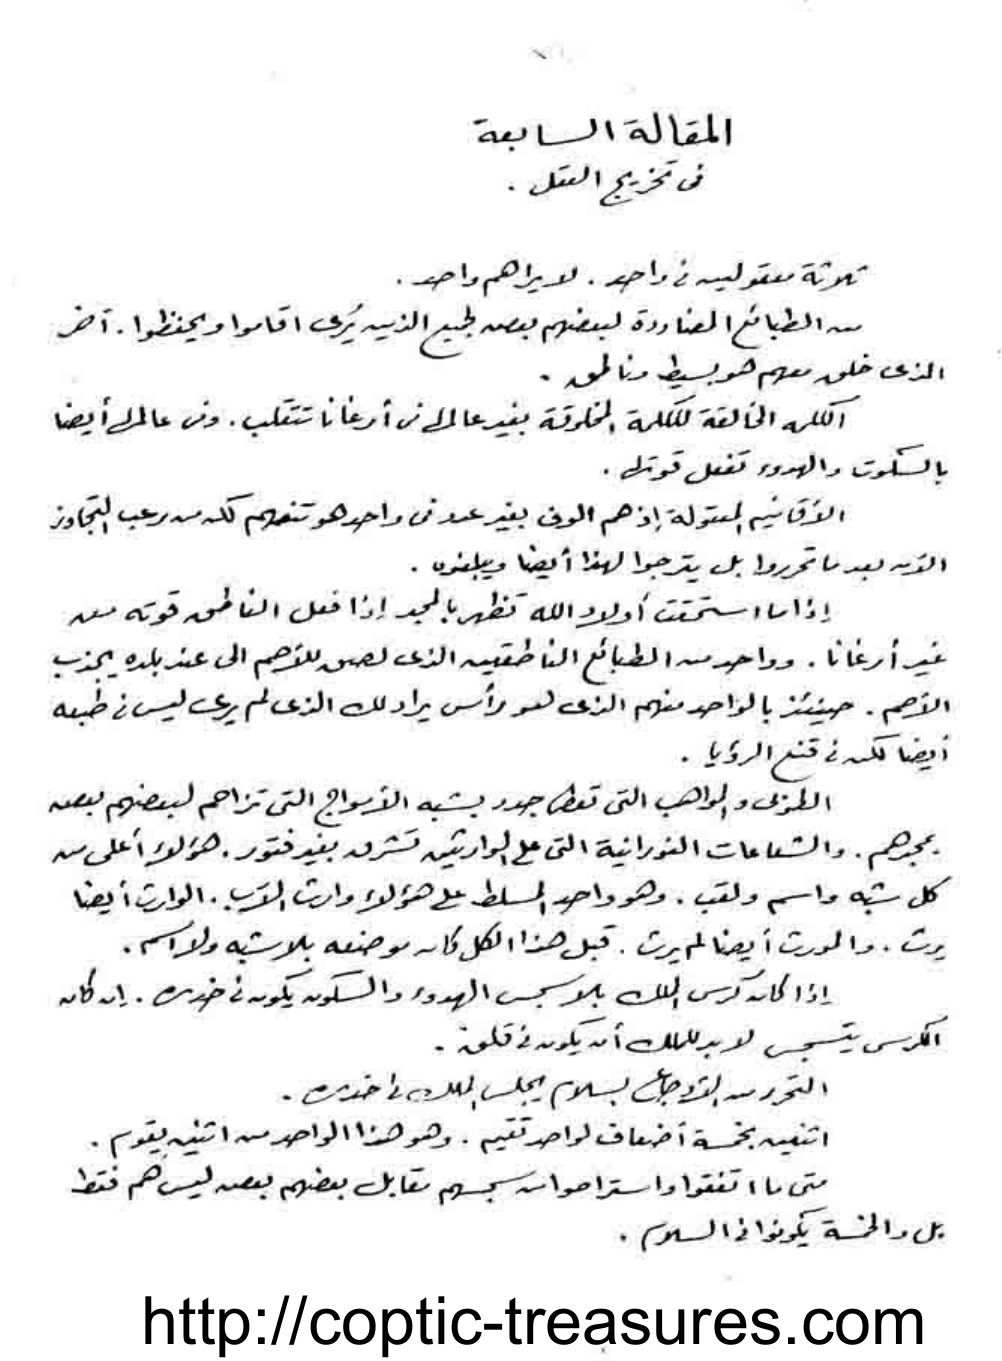 المقالة السابعة
فى تخريج العقل .
ثلاثة معقولين فى واحد . لا يراهم واحد .
من الطبائع المضاددة لبعضهم بعض لجميع الذين يُرى اقاموا ويحفظوا . آخر
الذى خلق معهم هو بسيط وناطق .
الكلمة الخالقة للكلمة المخلوقة بغير عالمك من أرغانا تتقلب . وفى عالمك أيضا
بالسكوت والهدوء تفعل قوتك .
الأقانيم المعقولة إذ هم الوف بغير عدد فى واحد هو تنعمهم لكن من رعب التجاوز
الآن بعد ما تحرروا بل يترجوا لهذا أيضا ويبلغون .
إذا ما استحقت أولاد الله تظهر بالمجد إذا فعل الناطق قوته من
غير أرغانا . وواحد من الطبائع الناطقين الذى لصق للأرحم الى عند بلده يجذب
الأرحم . حينئذ بالواحد منهم الذى هو رأس يراد لك الذى لم يرى ليس فى طبعه
أيضا لكن فى قنع الرؤيا .
الطوبى والمواهب التى تعطى جدد يشبه الأمواج التى تزاحم لبعضهم بعض
بمجدهم . والشعاعات النورانية التى على الوارثين تشرق بغير فتور . هؤلاء أعلى من
كل شبه واسم ولقب . وهو واحد المسلط على هؤلاء وارث الآب . الوارث أيضا
يرث . والمورث أيضا لم يرث . قبل هذا الكل كان موضعه بلا شبه ولا اسم .
إذا كان كرسى الملك بلا سجس الهدوء والسكون يكون فى خدره . إن كان
الكرسى يتسجس لابد للملك أن يكون فى قلق .
التحرر من الأوجاع بسلام يجلس الملك فى خدره .
اثنين بخمسة أضعاف لواحد تقيم . وهو هذا الواحد من اثنين يقوم .
متى ما اتفقوا واستراحوا من سجسهم مقابل بعضهم بعض ليس هم فقط
بل والخمسة يكونوا فى السلام .
http://coptic-treasures.com